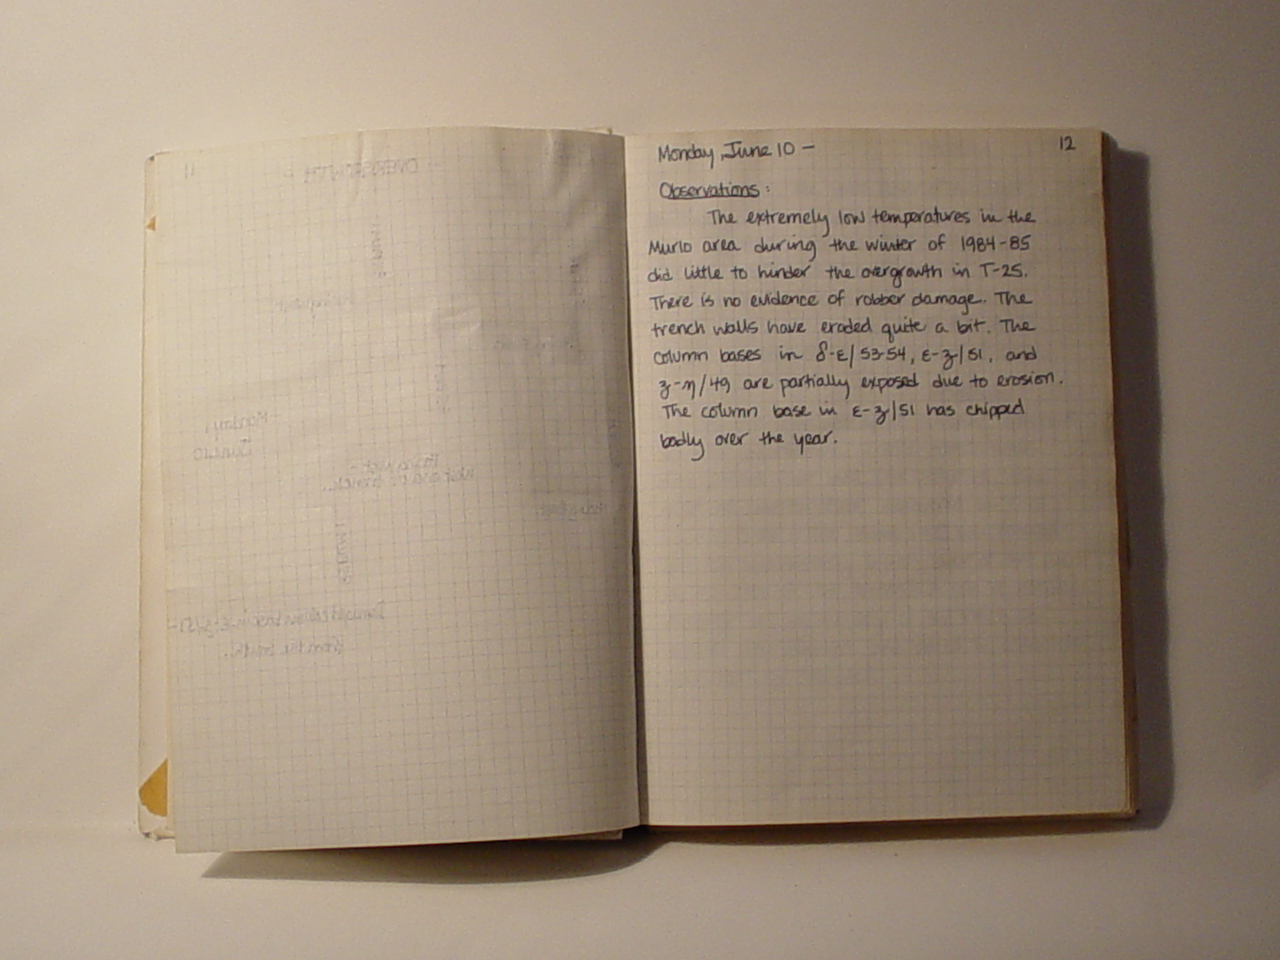 12
Monday, June 10 –
Observations:
The extremely low temperatures in the
Murlo area during the winter of 1984-85
did little to hinder the overgrowth in T-25.
There is no evidence of robber damage. The
trench walls have eroded quite a bit. The
column bases in δ-ε/53-54, ε-ʒ/51, and
ʒ-η/49 are partially exposed due to erosion.
The column base in ε-ʒ/51 has chipped
badly over the year.